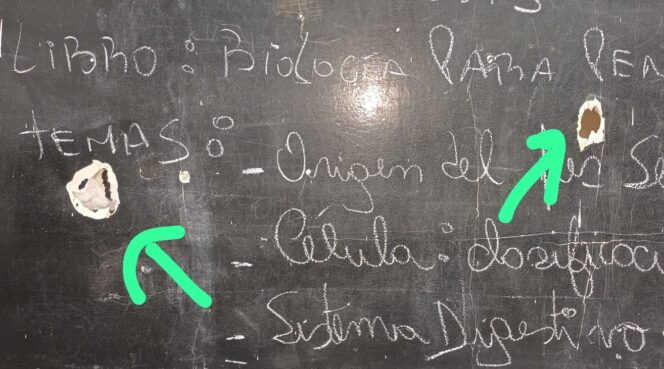 LIBRO: BIOLOGÍA PARA PEN
TEMAS: - Origen del los Se
- Célula: clasificaci
- Sistema Digestivo